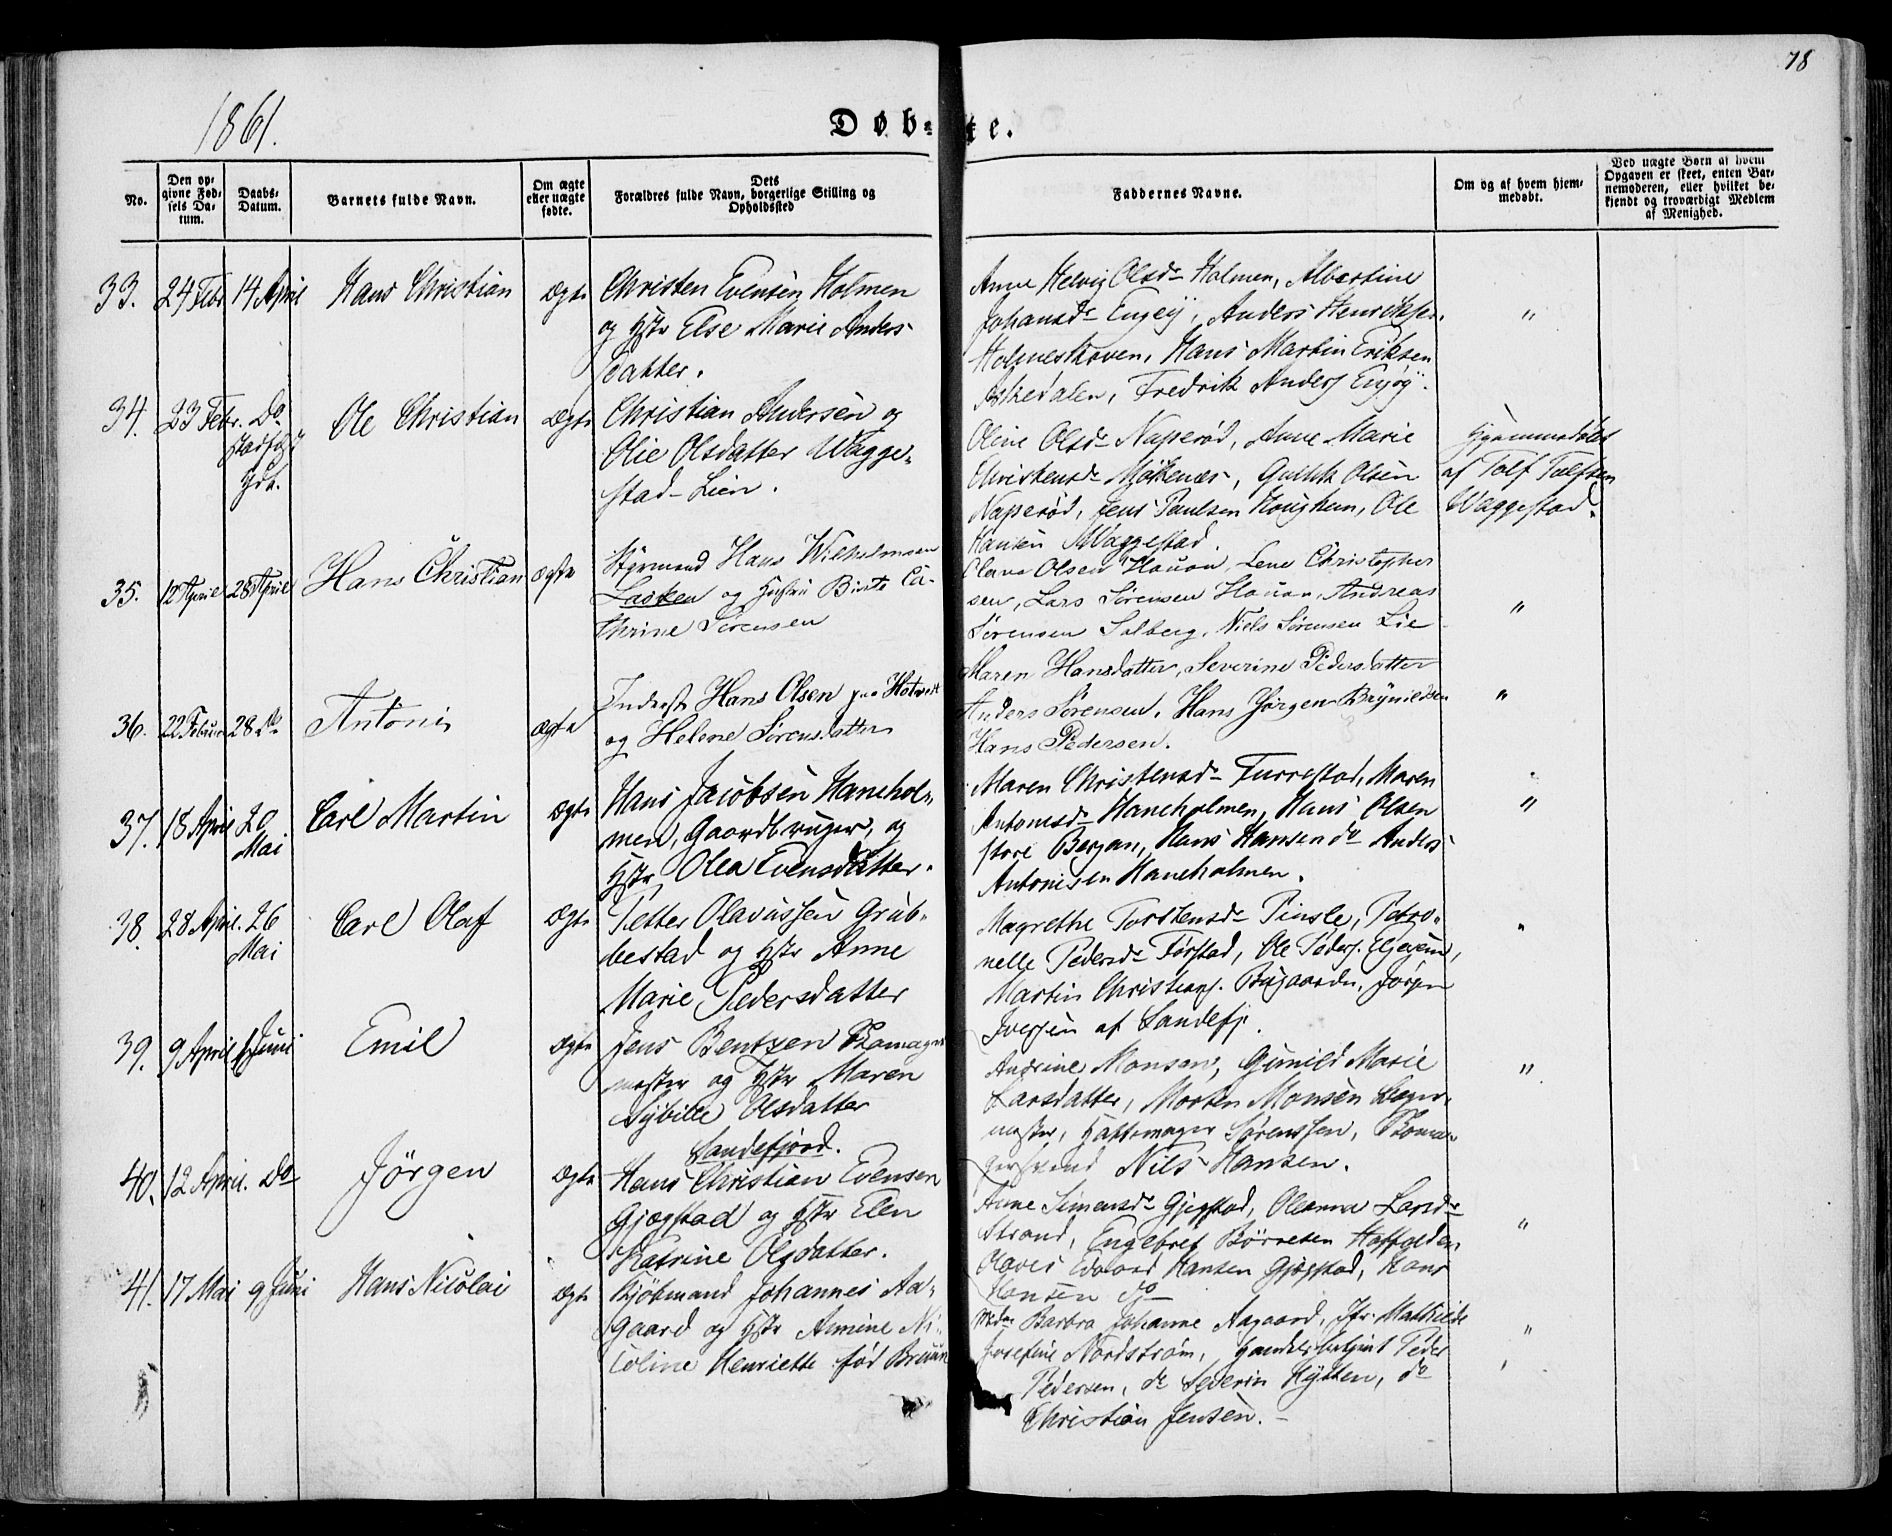 78
1861.
Døbte.
No.
Den opgivne Fødsels Datum.
Daabs-Datum.
Barnets fulde Navn.
Om ægte eller uægte fødte.
Forældres fulde Navn, Dets borgerlige Stilling og Opholdsted
Faddernes Navne.
Om og af hvem hjemmedøbt.
Ved uægte Børn af hvem Opgaven er skeet, enten Barnemoderen, eller hvilket bekjendt og troværdigt Medlem af Menighed.
33. 24 Febr 14 April Hans Christian Ægte
Christen Evensen Holmen
og Hstr Else Marie Anders
datter.
Anne Helvig Olsd. Holmen, Albertine
Johansd. Engøy, Anders Henriksen
Hans Martin Eriksen
Askedalen, Fredrik Anders Engøy.
"
34. 23 Febr. Do Ole Christian Ægte
Christian Andersen og
Olie Olsdatter Wagge-
stad-Lien.
Oline Olsd. Naperød, Anne Marie
Christensd. Olsen
Naperød, Jens Paulsen Ole
Hansen Waggestad.
Hjemmedøbt
af Tolf Tolfsen
Waggestad.
35. 12 April 28 April Hans Christian Ægte
Styrmand Hans Wilhelmsen
Lasken og Hustru Birte Ca-
thrine Sørensen
Olava Olsen Hauan, Lene Christopher
sen, Lars Sørensen Hauan, Andreas
Sørensen Solberg, Niels Sørensen Lie
"
36. 22 Februar 28 Do Antoni Ægte
Inderst Hans Olsen paa
og Helene Sørensdatter
Maren Hansdatter, Severine Pedersdatter
Anders Sørensen, Hans Jørgen Brynildsen
Hans Pedersen.
"
37. 18 April 20 Mai Carl Martin Ægte
Hans Jacobsen Hanehol-
men, Gaardbruger, og
Hstr Olea Evensdatter.
Maren Christensd. Furrestad, Maren
Antonsd. Haneholmen, Hans Olsen
store Bergan, Hans Hansen do Anders
Antonisen Haneholmen.
"
38. 28 April. 26 Mai Carl Olaf Ægte
Petter Olavussen Grub-
bestad og Hstr Anne
Marie Pedersdatter
Magrethe Torstensd. Pinsle, Petro-
nelle Pedersd. Førstad, Ole Peders.
Martin Christians. Bugaarden, Jørgen
Iversen af Sandefj.
"
39. 9 April 1 Juni Emil Ægte
Jens Bentzen
mester og Hstr Maren
Sybille Olsdatter
Sandefjord.
Andrine Monsen, Gunild Marie
Larsdatter, Morten Monsen
mester, Hattemager Sørenssen,
Nils Hansen.
"
40. 12 April. Do Jørgen Ægte
Hans Christian Evensen
Gjægstad og Hstr Elen
Katrine Olsdatter.
Anne Simensd. Gjegstad, Oleanna Larsd.
Strand, Engebret Børresen
Olaves Edvard Hansen Gjegstad, Hans
Hansen do
"
41. 17 Mai 9 Juni Hans Nicolai Ægte
Kjøbmand Johannes Aa-
gaard og Hstr Annine Ni-
coline Henriette fød Bruun
Mdm Barbra Johanne Aagaard, Jfr. Mathilde
Josefine Nordstrøm, Handelsbetjent Peder
Pedersen, do Severin Hytten, do
Christian Jensen.
"